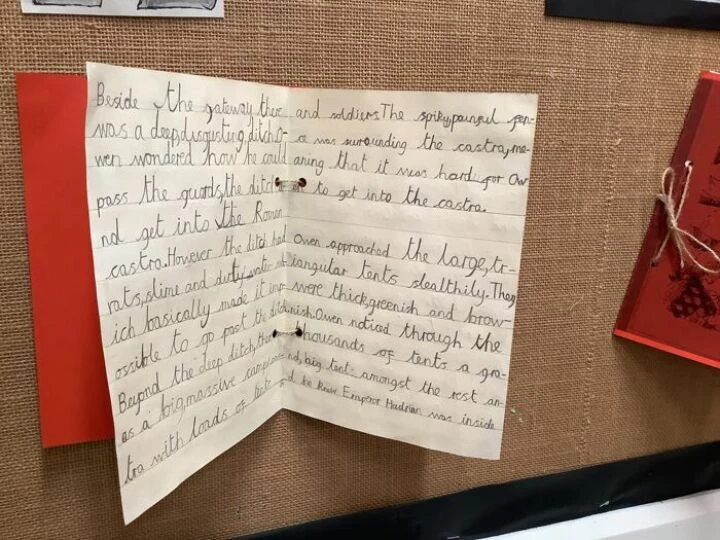 Beside the gateway ther
was a deep,disgusting,ditch.O-
wen wondered how he could
pass the guards,the ditch a
nd get into the Roman
castra.However the ditch had
rats,slime and dirty water wh
ich basically made it imp-
ossible to go past the ditch.
Beyond the deep ditch, ther w
as a big,massive camp
tra with loads of tents
and soldiers.The spiky,painful fen-
ce was surrounding the castra,me-
aning that it was hard for Ow
en to get into the castra.
Owen approached the large,tr-
iangular tents stealthily.They
were thick,greenish and brow-
nish.Owen noticed through the
thousands of tents a gra-
nd,big tent amongst the rest an-
d he knew Emperor Hadrian was inside